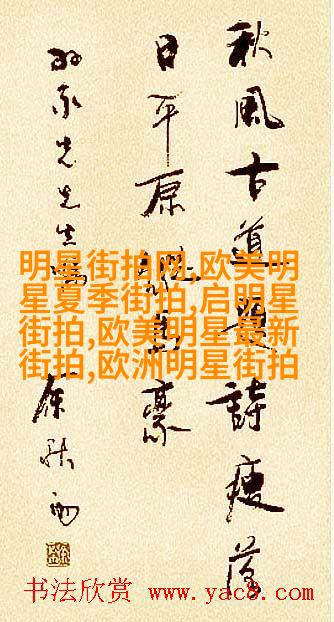 秋風古道題詩瘦落
日平原馬豪
先生
余秋雨
明星街拍网,欧美明
星夏季街拍,启明星
街拍,欧美明星最新
街拍,欧洲明星街拍
书法欣赏 www.yac8.com